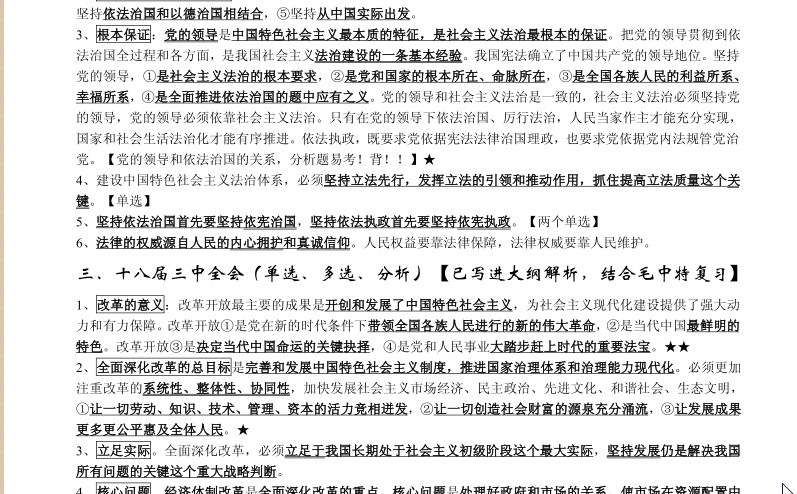 坚持依法治国和以德治国相结合，⑤坚持从中国实际出发。
3、根本保证：党的领导是中国特色社会主义最本质的特征，是社会主义法治最根本的保证。把党的领导贯彻到依
法治国全过程和各方面，是我国社会主义法治建设的一条基本经验。我国宪法确立了中国共产党的领导地位。坚持
党的领导，①是社会主义法治的根本要求，②是党和国家的根本所在、命脉所在，③是全国各族人民的利益所系、
幸福所系，④是全面推进依法治国的题中应有之义。党的领导和社会主义法治是一致的，社会主义法治必须坚持党
的领导，党的领导必须依靠社会主义法治。只有在党的领导下依法治国、厉行法治，人民当家作主才能充分实现，
国家和社会生活法治化才能有序推进。依法执政，既要求党依据宪法法律治国理政，也要求党依据党内法规管党治
党。【党的领导和依法治国的关系，分析题易考！背！！】★
4、建设中国特色社会主义法治体系，必须坚持立法先行，发挥立法的引领和推动作用，抓住提高立法质量这个关
键。【单选】
5、坚持依法治国首先要坚持依宪治国，坚持依法执政首先要坚持依宪执政。【两个单选】
6、法律的权威源自人民的内心拥护和真诚信仰。人民权益要靠法律保障，法律权威要靠人民维护。
三、十八届三中全会（单选、多选、分析）【已写进大纲解析，结合毛中特复习】
1、改革的意义：改革开放最主要的成果是开创和发展了中国特色社会主义，为社会主义现代化建设提供了强大动
力和有力保障。改革开放①是党在新的时代条件下带领全国各族人民进行的新的伟大革命，②是当代中国最鲜明的
特色。改革开放③是决定当代中国命运的关键抉择，④是党和人民事业大踏步赶上时代的重要法宝。★★
2、全面深化改革的总目标是完善和发展中国特色社会主义制度，推进国家治理体系和治理能力现代化。必须更加
注重改革的系统性、整体性、协同性，加快发展社会主义市场经济、民主政治、先进文化、和谐社会、生态文明，
①让一切劳动、知识、技术、管理、资本的活力竞相迸发，②让一切创造社会财富的源泉充分涌流，③让发展成果
更多更公平惠及全体人民。★
3、立足实际。全面深化改革，必须立足于我国长期处于社会主义初级阶段这个最大实际，坚持发展仍是解决我国
所有问题的关键这个重大战略判断。
4、核心问题。经济体制改革是全面深化改革的重点，核心问题是处理好政府和市场的关系，使市场在资源配置中